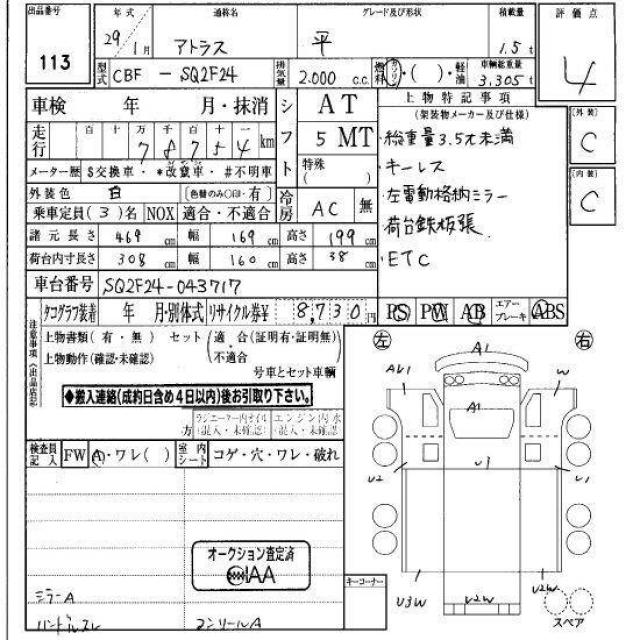 出品番号 年式 通称名 グレード及び形状 積載量 評価点
113 29年1月 アトラス 平 1.5t 4
型式 CBF - SQ2F24 排気量 2.000 c.c. 燃料 ガソリン・( )・軽油 車輌総重量 3,305t
車検 年 月・抹消 シフト AT 上物特記事項
(架装物メーカー及び仕様)
走行 百 十 万 千 百 十 一 km 5 MT
7 8 7 5 4
総重量3.5t未満
メーター歴 $交換車・*改竄車・#不明車 特殊 ( )
キーレス
外装色 白 (色替のみ○印・有) 冷房 AC 無
左電動格納ミラー
乗車定員(3)名 NOX 適合・不適合
荷台鉄板張
諸元長さ 469cm 幅 169cm 高さ 199cm
荷台内寸長さ 308cm 幅 160cm 高さ 38cm
ETC
車台番号 SQ2F24-043717
タコグラフ装着 年 月・別体式 リサイクル券¥ 8,730円 PS PW AB エアーブレーキ ABS
[外装] C
[内装] C
注意事項(出品店記)
上物書類(有・無) セット(適合(証明有・証明無)・不適合
上物動作(確認・未確認)
号車とセット車輌
◆搬入連絡(成約日含め4日以内)後お引取り下さい。
ラジエーター内オイル(混入・未確認) エンジン内水(混入・未確認)
検査員記入 FW A・ワレ( ) 室内シート コゲ・穴・ワレ・破れ
オークション査定済
IAA
ミラーA
ハンドルスレ
コーナー
左 右
A1
AU1 W
A1
U2 U1 U1
U3W U2W U2W
スペア